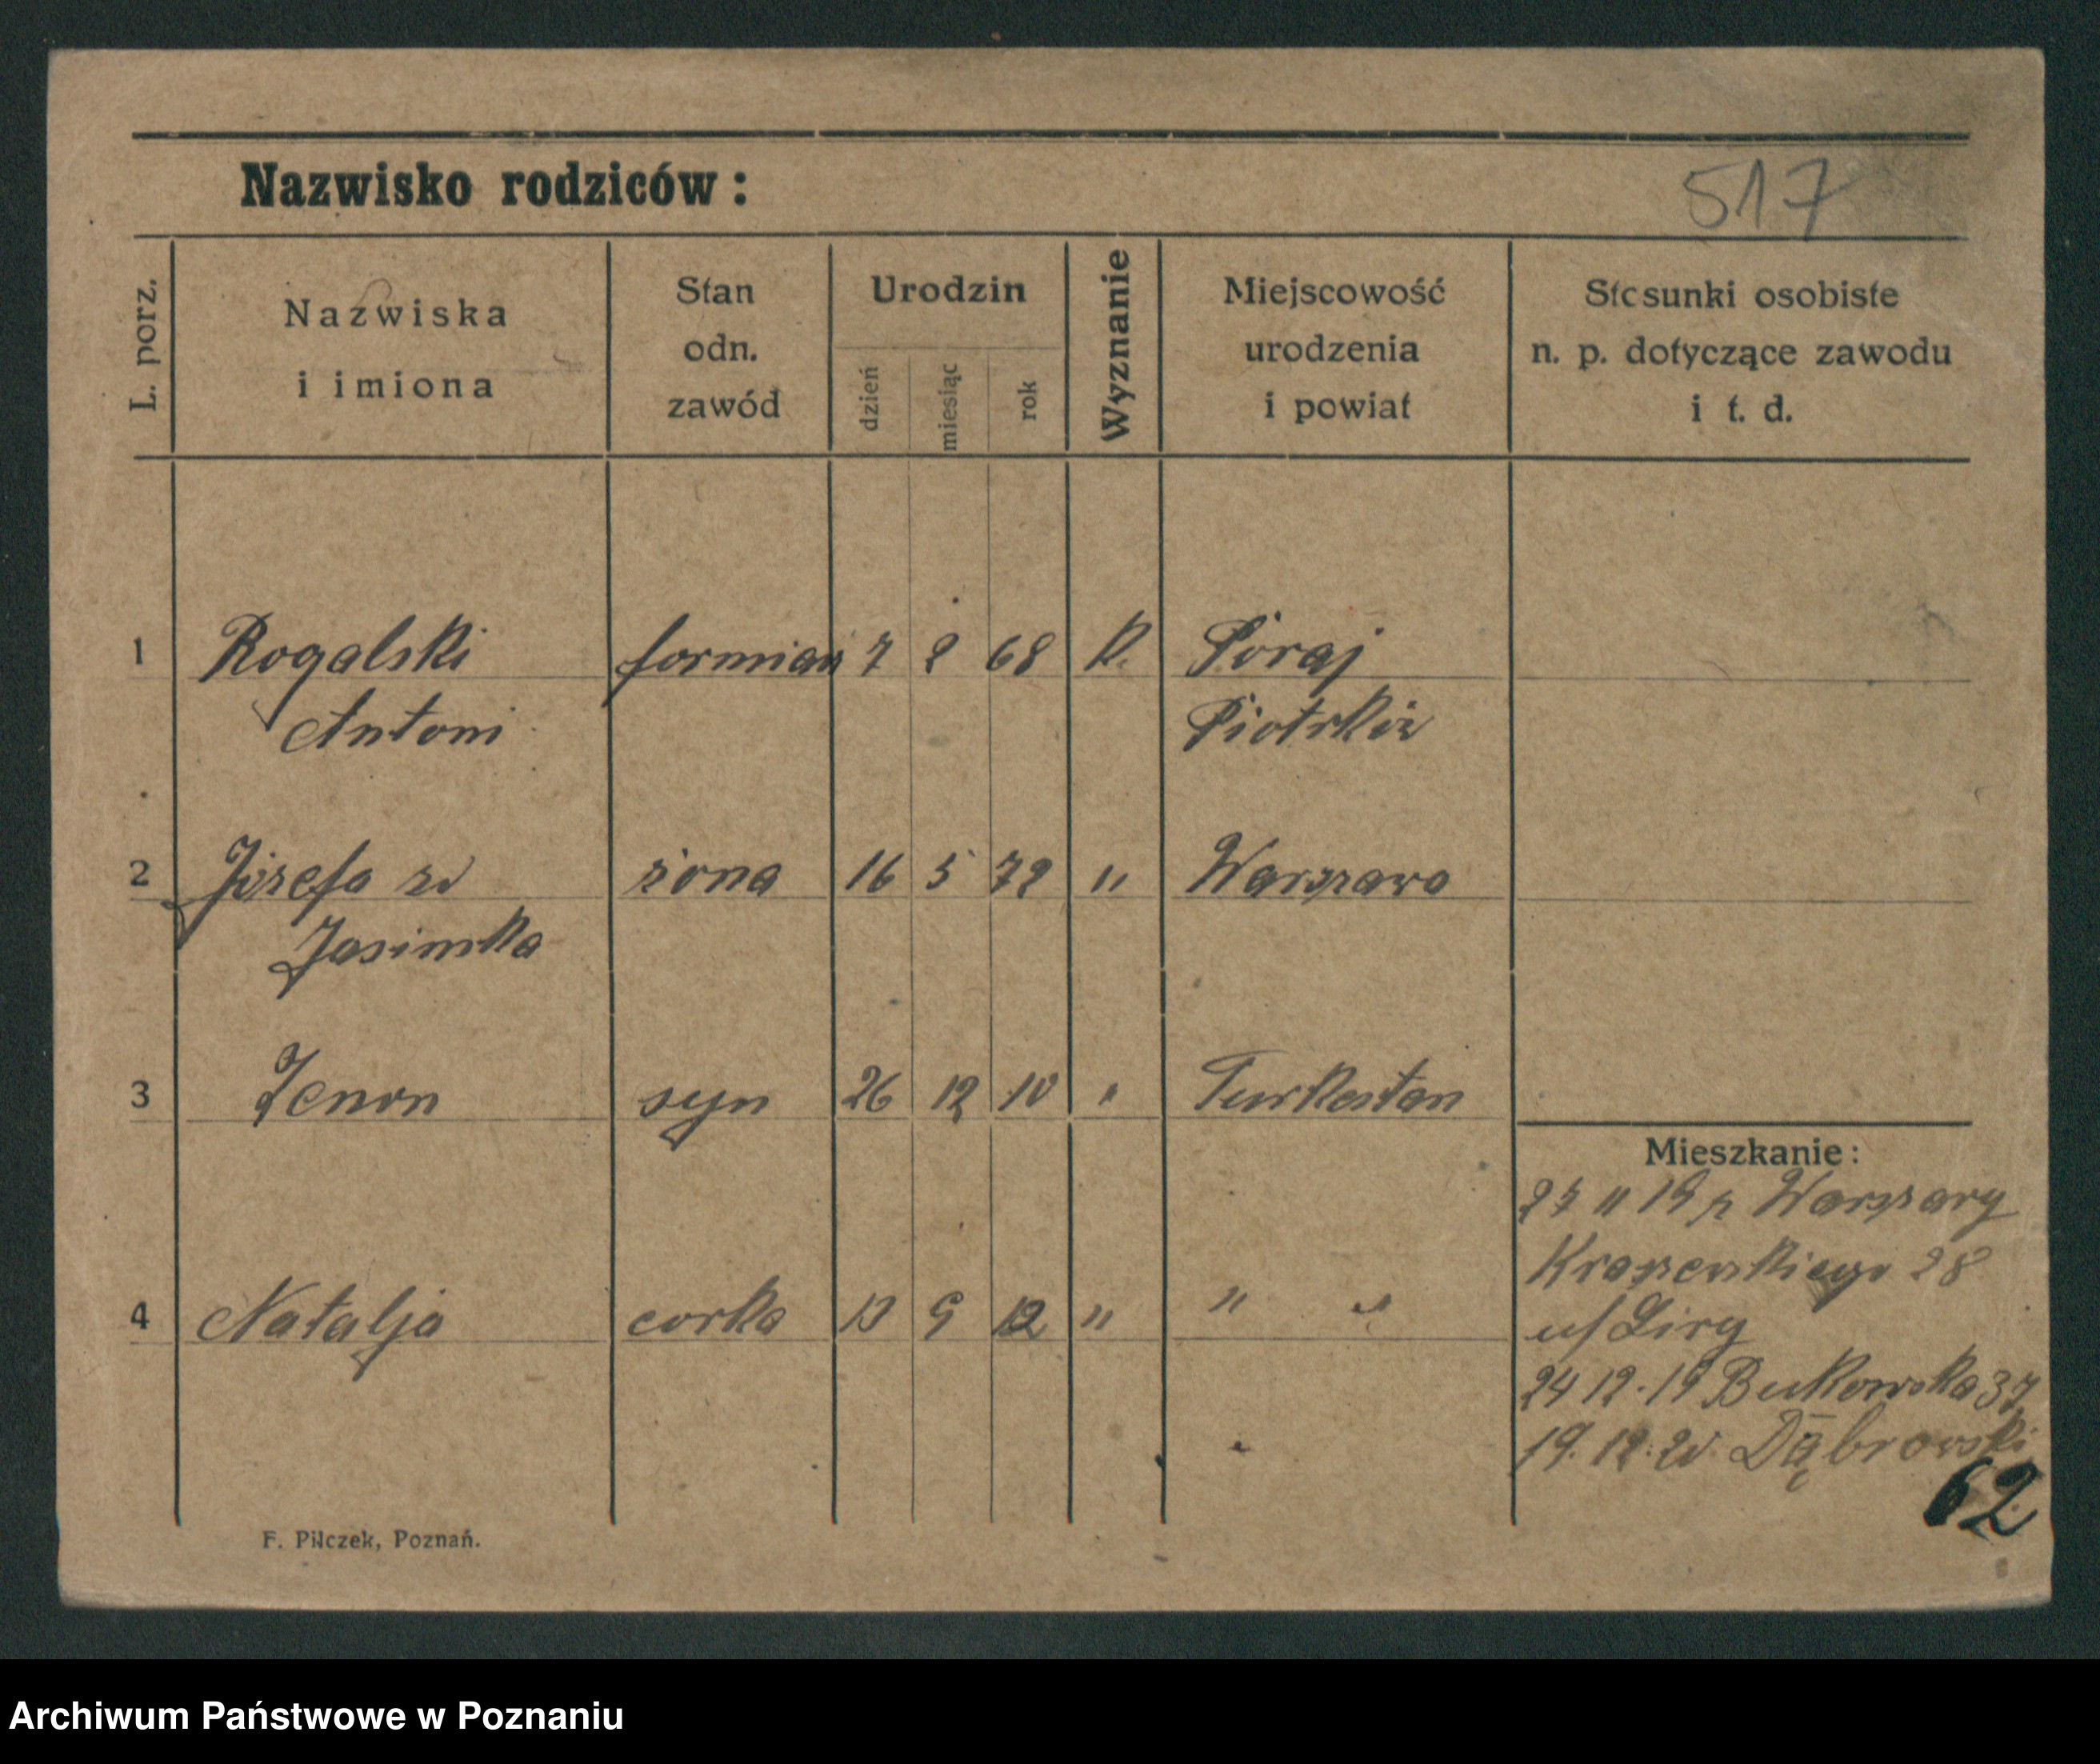 Nazwisko rodziców:
517
L. porz.
Nazwiska
i imiona
Stan
odn.
zawód
Urodzin
dzień
miesiąc
rok
Wyznanie
Miejscowość
urodzenia
i powiat
Stosunki osobiste
n. p. dotyczące zawodu
i t. d.
1 Rogalski formian 7 2 68 k. Poraj
Antoni Piotrków
2 Józefa zd żona 16 5 72 " Warszawa
Jasinska
3 Zenon syn 26 12 10 " Turkestan
Mieszkanie:
27 11 19 z Warszawy
Kraszewskiego 28
u/ Liry
4 Natalja corka 13 9 12 " " "
24 12.19 Bukowska 37
19.12.20. Dąbrowski
62
F. Pilczek, Poznań.
Archiwum Państwowe w Poznaniu